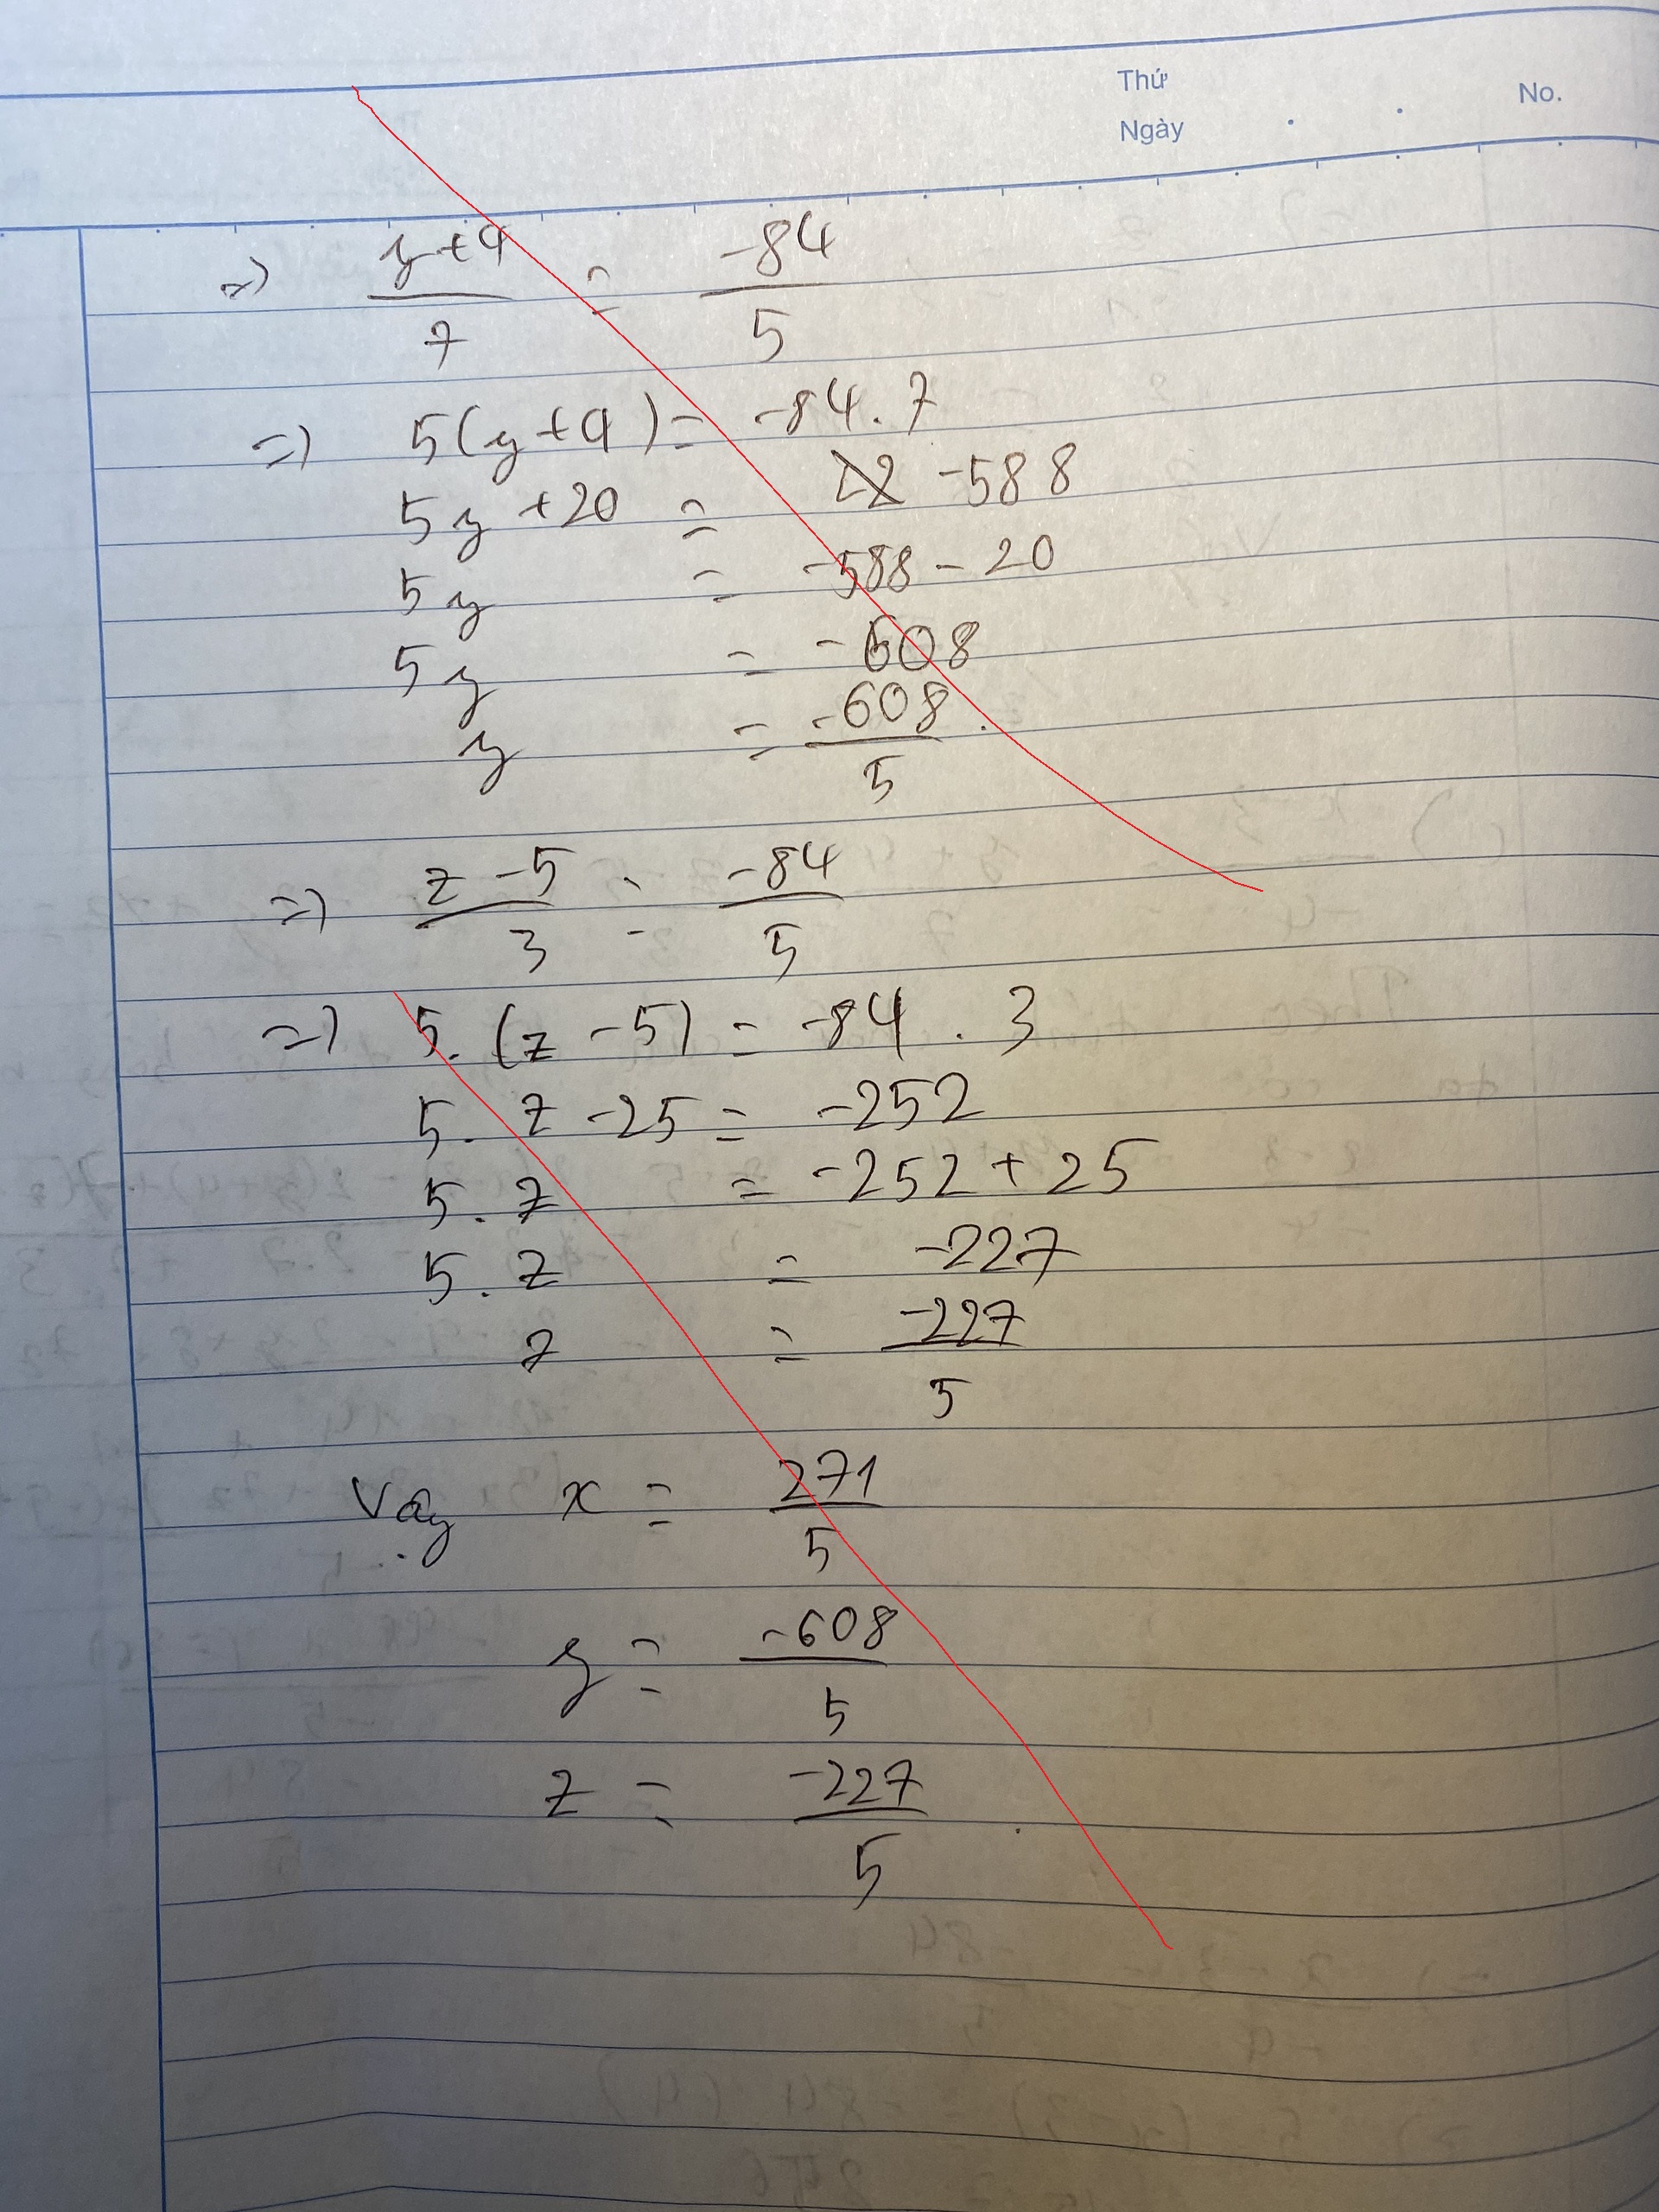 Thứ
Ngày
No.
=) y+4/7 = -84/5
=) 5(y+4) = -84.7
5y +20 = -588
5y = -588 - 20
5y = -608
y = -608/5
=) z-5/3 = -84/5
=) 5.(z-5) = -84 . 3
5. z -25 = -252
5. z = -252 + 25
5. z = -227
z = -227/5
Vậy x = 271/5
y = -608/5
z = -227/5